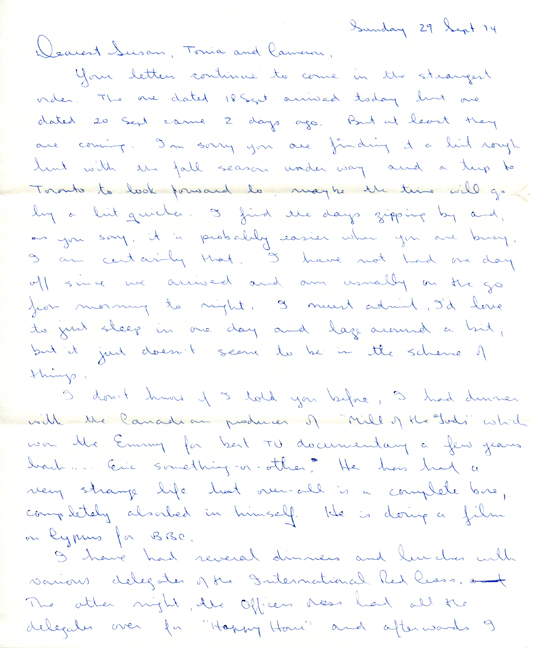 Sunday 29 Sept 74
Dearest Susan, Tonia and Cameron,
Your letters continue to come in the strangest
order. The one dated 18 Sept arrived today but one
dated 20 Sept came 2 days ago. But at least they
are coming. I'm sorry you are finding it a bit rough
but with the fall season under way and a trip to
Toronto to look forward to, maybe the time will go
by a bit quicker. I find the days zipping by and,
as you say, it is probably easier when you are busy.
I am certainly that. I have not had one day
off since we arrived and am usually on the go
from morning to night. I must admit, I'd love
to just sleep in one day and laze around a bit,
but it just doesn't seem to be in the scheme of
things.
I don't know if I told you before, I had dinner
with the Canadian producer of "Mill of the Gods" which
won the Emmy for best TV documentary a few years
back.... Eric something-or-other. He has had a
very strange life but over-all is a complete bore,
completely absorbed in himself. He is doing a film
on Cyprus for BBC.
I have had several dinners and lunches with
various delegates of the International Red Cross.
The other night, the Officers Mess had all the
delegates over for "Happy Hour" and afterwards I